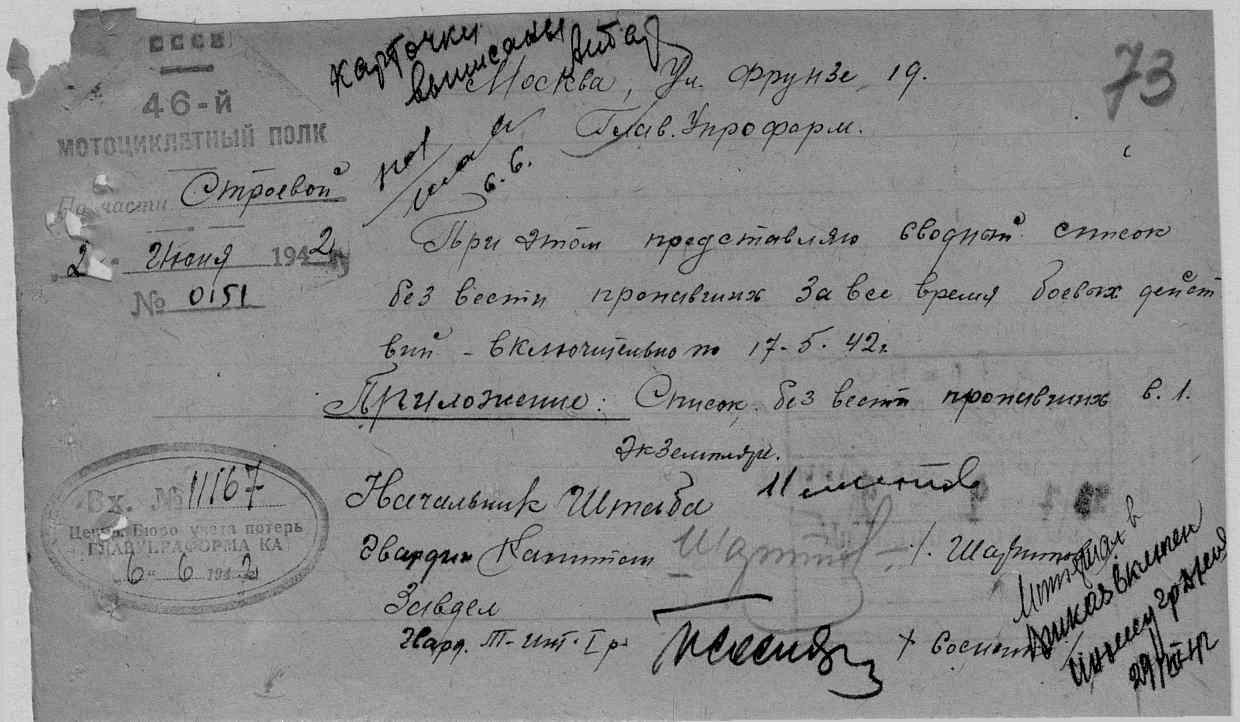 СССР
46-й
МОТОЦИКЛЕТНЫЙ ПОЛК
По части Строевой
2 Июня 1942
№ 0151
карточки
выписаны
73
Москва, Ул. Фрунзе, 19.
Глав. Упроформ.
6.6.
При этом представляю сводный список
без вести пропавших за все время боевых дейст
вий - включительно по 17-5-42г.
Приложение: Список без вести пропавших в. 1.
Экземпляре.
Вх. № 11167
Центр. Бюро учета потерь
ГЛАВУПРАФОРМА КА
6 - 6 1942
Начальник Штаба
Гвардии Капитан
Завдел
Материал в
приказ включен
29/VII 42